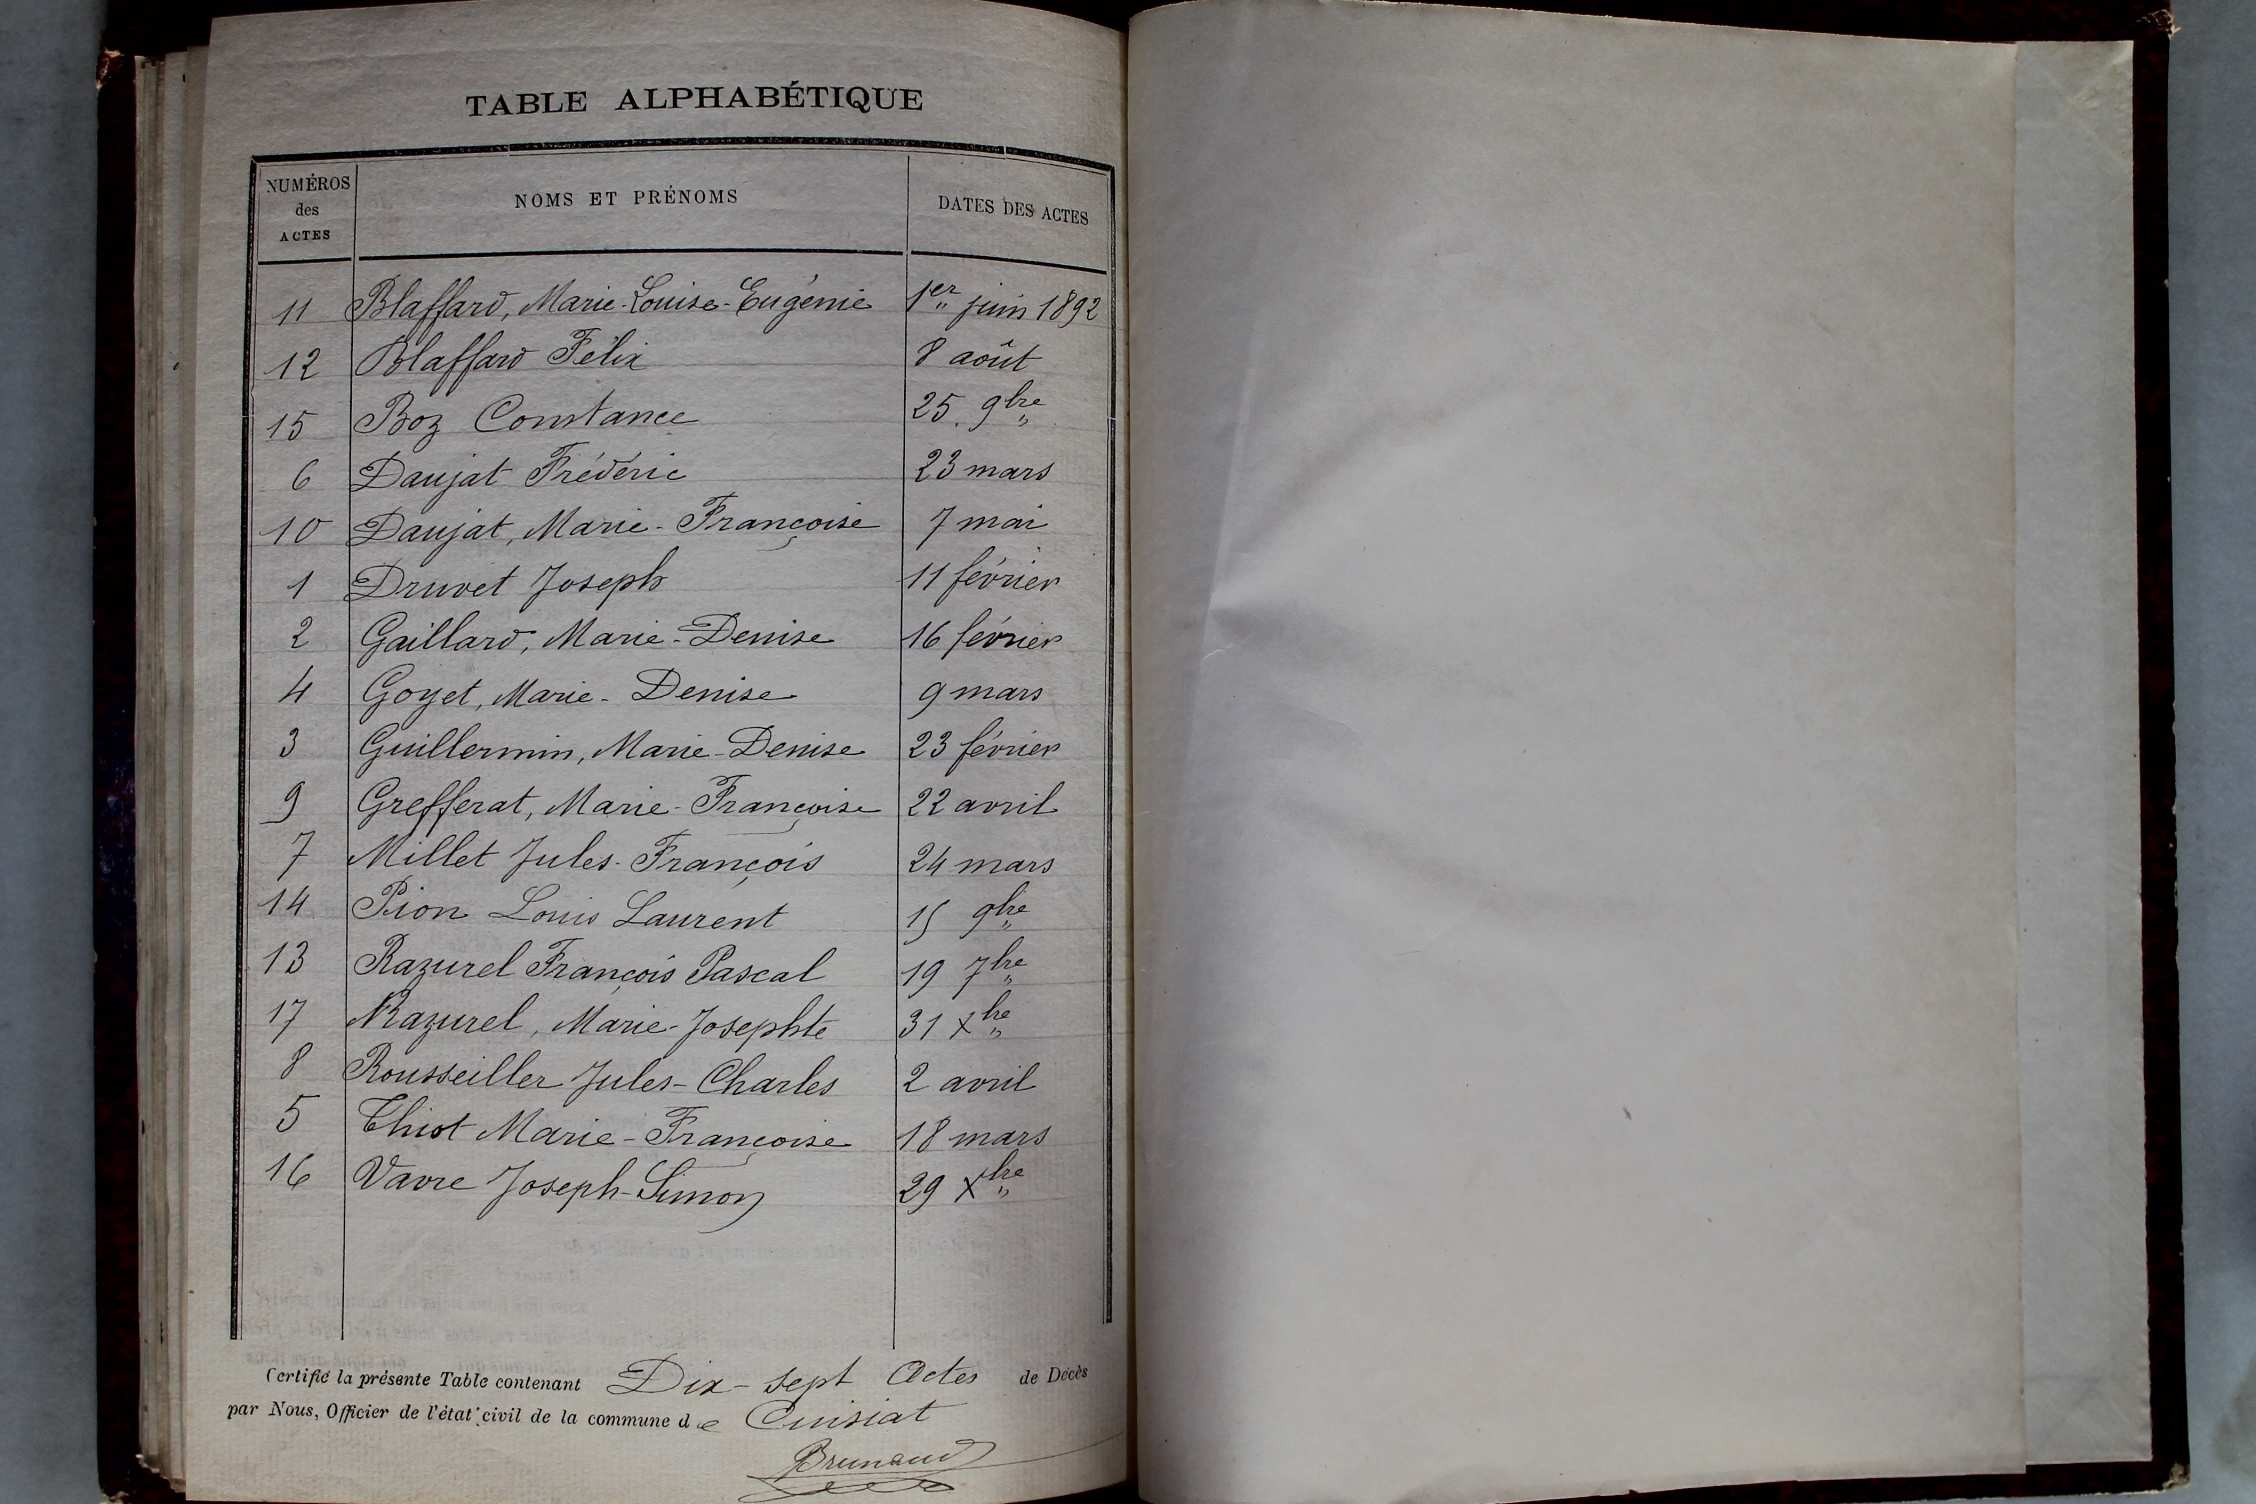 TABLE ALPHABÉTIQUE
NUMÉROS des ACTES NOMS ET PRÉNOMS DATES DES ACTES
11 Blaffard, Marie-Louise-Eugénie 1er juin 1892
12 Blaffard Félix 8 août
15 Boz Constance 25 9bre
6 Daujat Frédéric 23 mars
10 Daujat, Marie-Françoise 7 mai
1 Druvet Joseph 11 février
2 Gaillard, Marie-Denise 16 février
4 Goyet, Marie-Denise 9 mars
3 Guillermin, Marie-Denise 23 février
9 Grefferat, Marie-Françoise 22 avril
7 Millet Jules-François 24 mars
14 Pion Louis Laurent 15 9bre
13 Razurel François Pascal 19 7bre
17 Razurel, Marie-Josephte 31 Xbre
8 Rousseiller Jules-Charles 2 avril
5 Thiot Marie-Françoise 18 mars
16 Vavre Joseph-Simon 29 Xbre
Certifié la présente Table contenant Dix-sept Actes de Décès
par Nous, Officier de l'état civil de la commune de Cuisiat
Brunaud